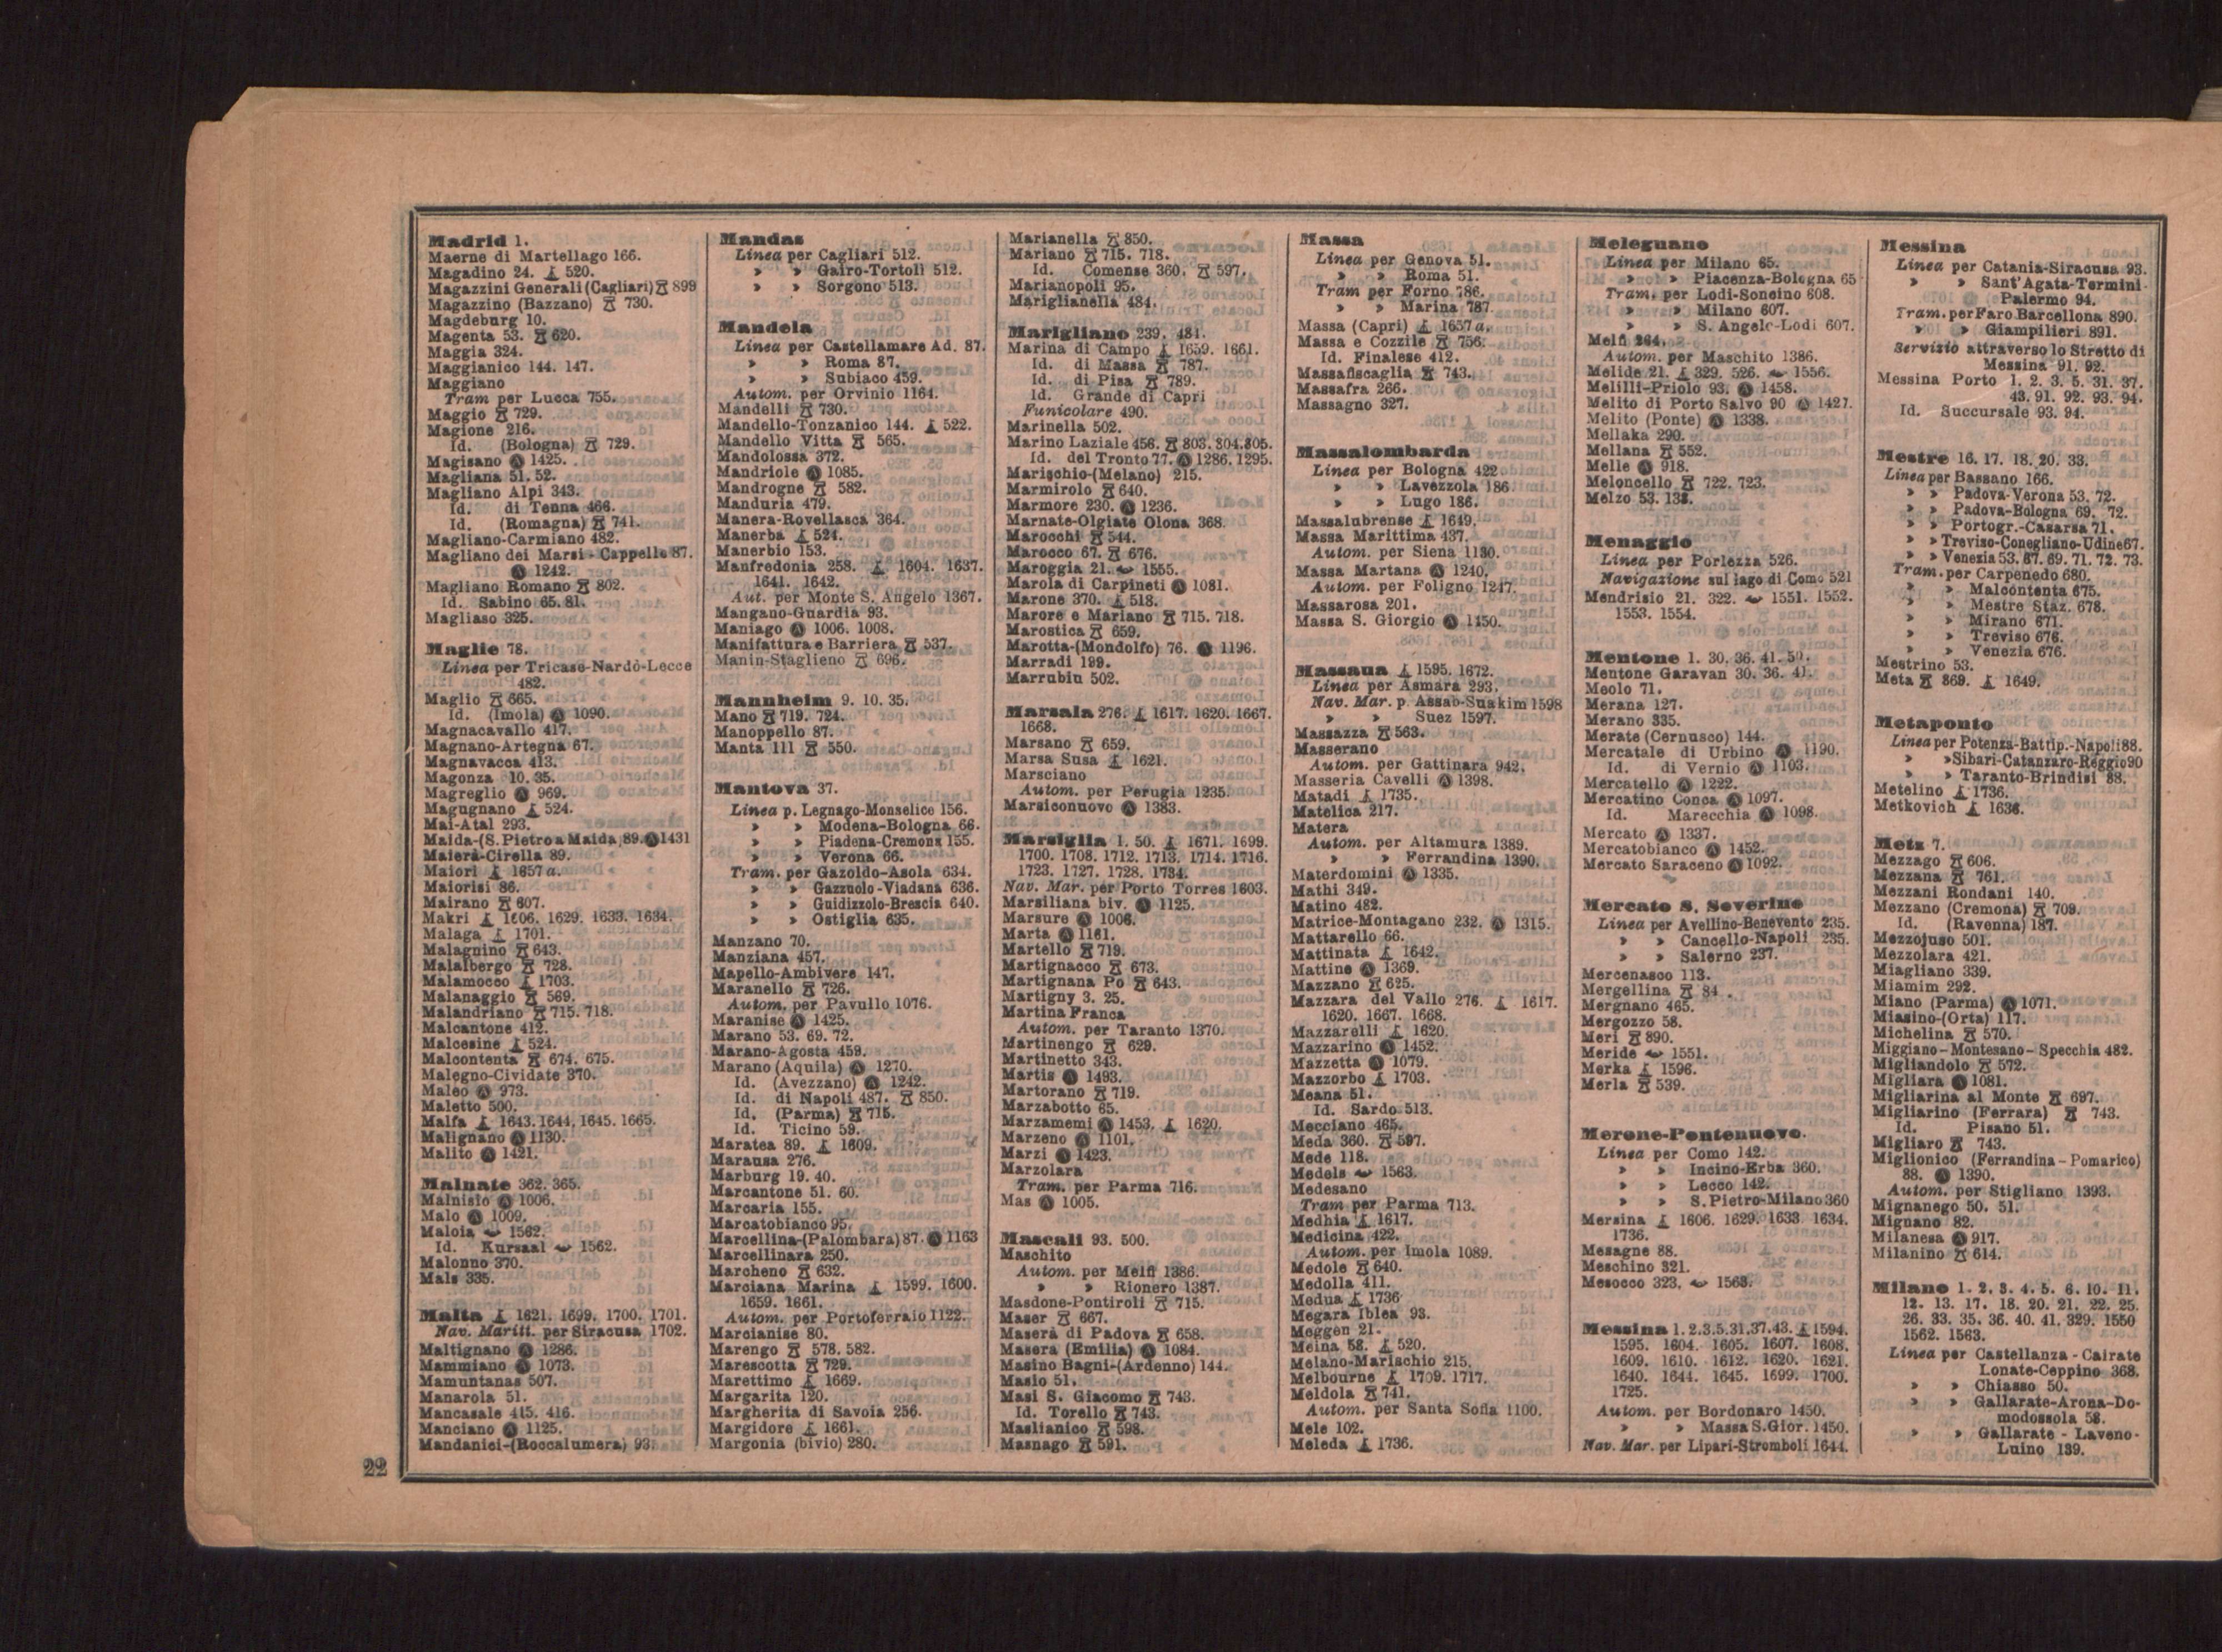 Madrid 1.
Maerne di Martellago 166.
Magadino 24. 520.
Magazzini Generali (Cagliari) 899
Magazzino (Bazzano) 730.
Magdeburg 10.
Magenta 53. 620.
Maggia 324.
Maggianico 144. 147.
Maggiano
Tram per Lucca 755.
Maggio 729.
Magione 216.
Id. (Bologna) 729.
Magisano 1425.
Magliana 51. 52.
Magliano Alpi 343.
Id. di Tenna 466.
Id. (Romagna) 741.
Magliano-Carmiano 482.
Magliano dei Marsi-Cappelle 87.
1242.
Magliano Romano 802.
Id. Sabino 65. 81.
Magliaso 325.
Maglie 78.
Linea per Tricase-Nardò-Lecce
482.
Maglio 665.
Id. (Imola) 1090.
Magnacavallo 417.
Magnano-Artegna 67.
Magnavacca 413.
Magonza 10. 35.
Magreglio 969.
Magugnano 524.
Mai-Atal 293.
Maida-(S. Pietro a Maida) 89. 1431
Maierà-Cirella 89.
Maiori 1657 a.
Maiorisi 86.
Mairano 607.
Makri 1606. 1629. 1633. 1634.
Malaga 1701.
Malagnino 643.
Malalbergo 728.
Malamocco 1703.
Malanaggio 569.
Malandriano 715. 718.
Malcantone 412.
Malcesine 524.
Malcontenta 674. 675.
Malegno-Cividate 370.
Maleo 973.
Maletto 500.
Malfa 1643. 1644. 1645. 1665.
Malignano 1130.
Malito 1421.
Malnate 362. 365.
Malnisio 1006.
Malo 1009.
Maloia 1562.
Id. Kursaal 1562.
Malonno 370.
Mals 335.
Malta 1621. 1699. 1700. 1701.
Nav. Maritt. per Siracusa 1702.
Maltignano 1286.
Mammiano 1073.
Mamuntanas 507.
Manarola 51.
Mancasale 415. 416.
Manciano 1125.
Mandanici-(Roccalumera) 93.
Mandas
Linea per Cagliari 512.
» » Gairo-Tortolì 512.
» » Sorgono 513.
Mandela
Linea per Castellamare Ad. 87.
» » Roma 87.
» » Subiaco 459.
Autom. per Orvinio 1164.
Mandelli 730.
Mandello-Tonzanico 144. 522.
Mandello Vitta 565.
Mandolossa 372.
Mandriole 1085.
Mandrogne 582.
Manduria 479.
Manera-Rovellasca 364.
Manerba 524.
Manerbio 153.
Manfredonia 258. 1604. 1637.
1641. 1642.
Aut. per Monte S. Angelo 1367.
Mangano-Guardia 93.
Maniago 1006. 1008.
Manifattura e Barriera 537.
Manin-Staglieno 696.
Mannheim 9. 10. 35.
Mano 719. 724.
Manoppello 87.
Manta 111 550.
Mantova 37.
Linea p. Legnago-Monselice 156.
» » Modena-Bologna 66.
» » Piadena-Cremona 155.
» » Verona 66.
Tram. per Gazoldo-Asola 634.
» » Gazzuolo-Viadana 636.
» » Guidizzolo-Brescia 640.
» » Ostiglia 635.
Manzano 70.
Manziana 457.
Mapello-Ambivere 147.
Maranello 726.
Autom. per Pavullo 1076.
Maranise 1425.
Marano 53. 69. 72.
Marano-Agosta 459.
Marano (Aquila) 1270.
Id. (Avezzano) 1242.
Id. di Napoli 487. 850.
Id. (Parma) 715.
Id. Ticino 59.
Maratea 89. 1609.
Marausa 276.
Marburg 19. 40.
Marcantone 51. 60.
Marcaria 155.
Marcatobianco 95.
Marcellina-(Palombara) 87. 1163
Marcellinara 250.
Marcheno 632.
Marciana Marina 1599. 1600.
1659. 1661.
Autom. per Portoferraio 1122.
Marcianise 80.
Marengo 578. 582.
Marescotta 729.
Marettimo 1669.
Margarita 120.
Margherita di Savoia 256.
Margidore 1661.
Margonia (bivio) 280.
Marianella 850.
Mariano 715. 718.
Id. Comense 360. 597.
Marianopoli 95.
Mariglianella 484.
Marigliano 239. 481.
Marina di Campo 1659. 1661.
Id. di Massa 787.
Id. di Pisa 789.
Id. Grande di Capri
Funicolare 490.
Marinella 502.
Marino Laziale 456. 803. 804. 805.
Id. del Tronto 77. 1286. 1295.
Marischio-(Melano) 215.
Marmirolo 640.
Marmore 230. 1236.
Marnate-Olgiate Olona 368.
Marocchi 544.
Marocco 67. 676.
Maroggia 21. 1555.
Marola di Carpineti 1081.
Marone 370. 518.
Marore e Mariano 715. 718.
Marostica 659.
Marotta-(Mondolfo) 76. 1196.
Marradi 199.
Marrubiu 502.
Marsala 276. 1617. 1620. 1667.
1668.
Marsano 659.
Marsa Susa 1621.
Marsciano
Autom. per Perugia 1235.
Marsiconuovo 1383.
Marsiglia 1. 50. 1671. 1699.
1700. 1708. 1712. 1713. 1714. 1716.
1723. 1727. 1728. 1734.
Nav. Mar. per Porto Torres 1603.
Marsiliana biv. 1125.
Marsure 1006.
Marta 1161.
Martello 719.
Martignacco 673.
Martignana Po 643.
Martigny 3. 25.
Martina Franca
Autom. per Taranto 1370.
Martinengo 629.
Martinetto 343.
Martis 1493.
Martorano 719.
Marzabotto 65.
Marzamemi 1453. 1620.
Marzeno 1101.
Marzi 1423.
Marzolara
Tram. per Parma 716.
Mas 1005.
Mascali 93. 500.
Maschito
Autom. per Melfi 1386.
» » Rionero 1387.
Masdone-Pontiroli 715.
Maser 667.
Maserà di Padova 658.
Masera (Emilia) 1084.
Masino Bagni-(Ardenno) 144.
Masio 51.
Masi S. Giacomo 743.
Id. Torello 743.
Maslianico 598.
Masnago 591.
Massa
Linea per Genova 51.
» » Roma 51.
Tram per Forno 786.
» » Marina 787.
Massa (Capri) 1657 a.
Massa e Cozzile 756.
Id. Finalese 412.
Massafiscaglia 743.
Massafra 266.
Massagno 327.
Massalombarda
Linea per Bologna 422
» » Lavezzola 186.
» » Lugo 186.
Massalubrense 1649.
Massa Marittima 437.
Autom. per Siena 1130.
Massa Martana 1240.
Autom. per Foligno 1247.
Massarosa 201.
Massa S. Giorgio 1450.
Massaua 1595. 1672.
Linea per Asmara 293.
Nav. Mar. p. Assab-Suakim 1598
» » Suez 1597.
Massazza 563.
Masserano
Autom. per Gattinara 942.
Masseria Cavelli 1398.
Matadi 1735.
Matelica 217.
Matera
Autom. per Altamura 1389.
» » Ferrandina 1390.
Materdomini 1335.
Mathi 349.
Matino 482.
Matrice-Montagano 232. 1315.
Mattarello 66.
Mattinata 1642.
Mattine 1369.
Mazzano 625.
Mazzara del Vallo 276. 1617.
1620. 1667. 1668.
Mazzarelli 1620.
Mazzarino 1452.
Mazzetta 1079.
Mazzorbo 1703.
Meana 51.
Id. Sardo 513.
Mecciano 465.
Meda 360. 597.
Mede 118.
Medels 1563.
Medesano
Tram per Parma 713.
Medhia 1617.
Medicina 422.
Autom. per Imola 1089.
Medole 640.
Medolla 411.
Medua 1736
Megara Iblea 93.
Meggen 21.
Meina 58. 520.
Melano-Marischio 215.
Melbourne 1709. 1717.
Meldola 741.
Autom. per Santa Sofia 1100.
Mele 102.
Meleda 1736.
Melegnano
Linea per Milano 65.
» » Piacenza-Bologna 65
Tram. per Lodi-Soncino 608.
» » Milano 607.
» » S. Angelo-Lodi 607.
Melfi 264.
Autom. per Maschito 1386.
Melide 21. 329. 526. 1556.
Melilli-Priolo 93. 1458.
Melito di Porto Salvo 90 1427.
Melito (Ponte) 1338.
Mellaka 290.
Mellana 552.
Melle 918.
Meloncello 722. 723.
Melzo 53. 138.
Menaggio
Linea per Porlezza 526.
Navigazione sul lago di Como 521
Mendrisio 21. 322. 1551. 1552.
1553. 1554.
Mentone 1. 30. 36. 41. 50.
Mentone Garavan 30. 36. 41.
Meolo 71.
Merana 127.
Merano 335.
Merate (Cernusco) 144.
Mercatale di Urbino 1190.
Id. di Vernio 1103.
Mercatello 1222.
Mercatino Conca 1097.
Id. Marecchia 1098.
Mercato 1337.
Mercatobianco 1452.
Mercato Saraceno 1092.
Mercato S. Severino
Linea per Avellino-Benevento 235.
» » Cancello-Napoli 235.
» » Salerno 237.
Mercenasco 113.
Mergellina 84 .
Mergnano 465.
Mergozzo 58.
Meri 890.
Meride 1551.
Merka 1596.
Merla 539.
Merone-Pontenuovo.
Linea per Como 142.
» » Incino-Erba 360.
» » Lecco 142.
» » S. Pietro-Milano 360
Mersina 1606. 1629. 1633 1634.
1736.
Mesagne 88.
Meschino 321.
Mesocco 323. 1563.
Messina 1. 2. 3. 5. 31. 37. 43. 1594.
1595. 1604. 1605. 1607. 1608.
1609. 1610. 1612. 1620. 1621.
1640. 1644. 1645. 1699. 1700.
1725.
Autom. per Bordonaro 1450.
» » Massa S. Gior. 1450.
Nav. Mar. per Lipari-Stromboli 1644.
Messina
Linea per Catania-Siracusa 93.
» » Sant'Agata-Termini-
Palermo 94.
Tram. per Faro Barcellona 890.
» » Giampilieri 891.
Servizio attraverso lo Stretto di
Messina 91. 92.
Messina Porto 1. 2. 3. 5. 31. 37.
43. 91. 92. 93. 94.
Id. Succursale 93. 94.
Mestre 16. 17. 18. 20. 33.
Linea per Bassano 166.
» » Padova-Verona 53. 72.
» » Padova-Bologna 69. 72.
» » Portogr.-Casarsa 71.
» » Treviso-Conegliano-Udine 67.
» » Venezia 53. 67. 69. 71. 72. 73.
Tram. per Carpenedo 680.
» » Malcontenta 675.
» » Mestre Staz. 678.
» » Mirano 671.
» » Treviso 676.
» » Venezia 676.
Mestrino 53.
Meta 869. 1649.
Metaponto
Linea per Potenza-Battip.-Napoli 88.
» » Sibari-Catanzaro-Reggio 90
» » Taranto-Brindisi 88.
Metelino 1736.
Metkovich 1636.
Metz 7.
Mezzago 606.
Mezzana 761.
Mezzani Rondani 140.
Mezzano (Cremona) 709.
Id. (Ravenna) 187.
Mezzojuso 501.
Mezzolara 421.
Miagliano 339.
Miamim 292.
Miano (Parma) 1071.
Miasino-(Orta) 117.
Michelina 570.
Miggiano-Montesano-Specchia 482.
Migliandolo 572.
Migliara 1081.
Migliarina al Monte 697.
Migliarino (Ferrara) 743.
Id. Pisano 51.
Migliaro 743.
Miglionico (Ferrandina-Pomarico)
88. 1390.
Autom. per Stigliano 1393.
Mignanego 50. 51.
Mignano 82.
Milanesa 917.
Milanino 614.
Milano 1. 2. 3. 4. 5. 6. 10. 11.
12. 13. 17. 18. 20. 21. 22. 25.
26. 33. 35. 36. 40. 41. 329. 1550
1562. 1563.
Linea per Castellanza-Cairate
Lonate-Ceppino 368.
» » Chiasso 50.
» » Gallarate-Arona-Do-
modossola 58.
» » Gallarate-Laveno-
Luino 139.
22